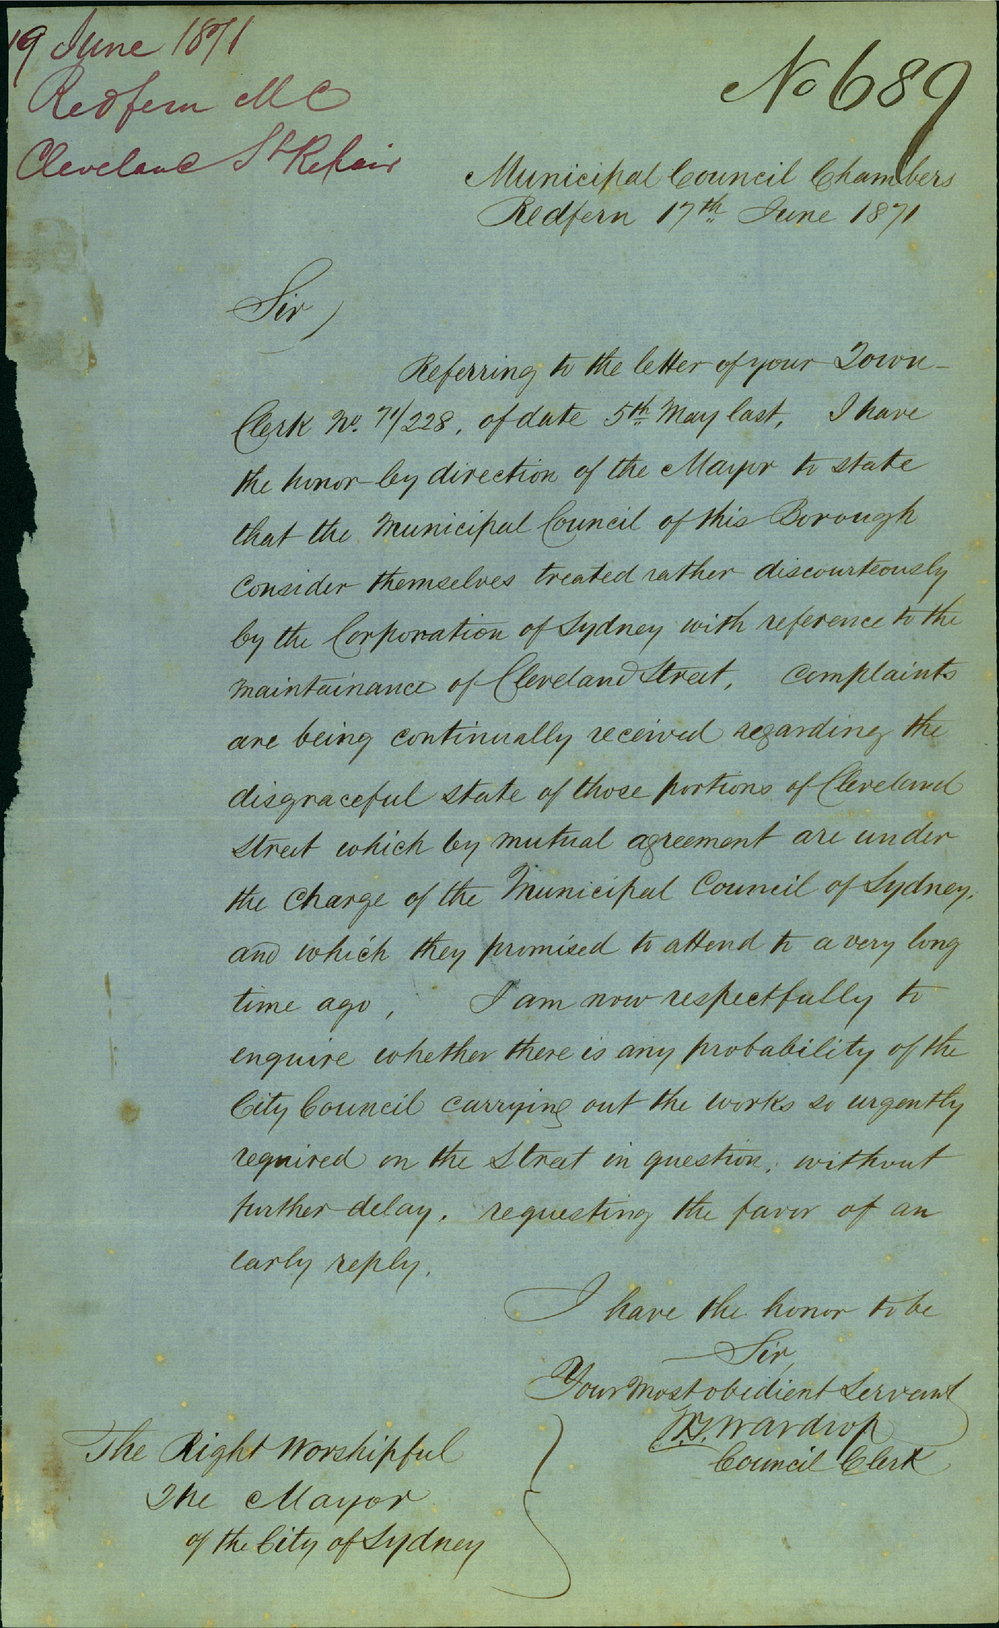 19 June 1871
Redfern M C
Cleveland St Repair
No 689
Municipal Council Chambers
Redfern 17th June 1871
Sir,
Referring to the letter of your Town-
Clerk No. 71/228, of date 5th May last, I have
the honor by direction of the Mayor to state
that the Municipal Council of this Borough
consider themselves treated rather discourteously
by the Corporation of Sydney with reference to the
maintainance of Cleveland Street, complaints
are being continually received regarding the
disgraceful state of those portions of Cleveland
Street which by mutual agreement are under
the charge of the Municipal Council of Sydney,
and which they promised to attend to a very long
time ago, I am now respectfully to
enquire whether there is any probability of the
City Council carrying out the works so urgently
required on the Street in question, without
further delay. requesting the favor of an
early reply.
I have the honor to be
Sir,
Your most obedient Servant
Wardrop
Council Clerk
The Right Worshipful
The Mayor
of the City of Sydney